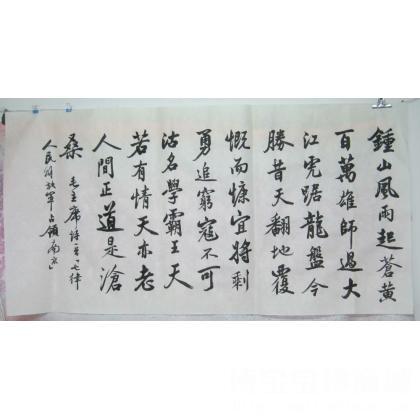 鍾山風雨起蒼黃
百萬雄師過大
江虎踞龍盤今
勝昔天翻地覆
慨而慷宜將剩
勇追窮寇不可
沽名學霸王天
若有情天亦老
人間正道是滄
桑 毛主席詩七律
人民解放軍占領南京」